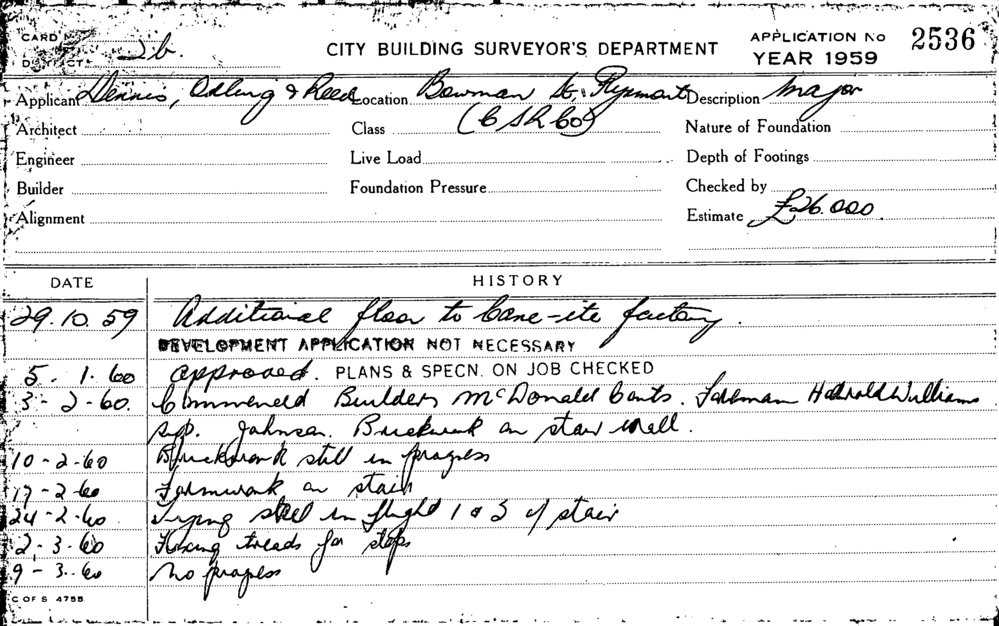 CARD
DISTRICT 2b.
CITY BUILDING SURVEYOR'S DEPARTMENT
APPLICATION No 2536
YEAR 1959
Applicant Dennis, Adling & Reed Location Bowman St. Pyrmont Description Major
Architect Class (CSR Co) Nature of Foundation
Engineer Live Load Depth of Footings
Builder Foundation Pressure Checked by
Alignment Estimate £26.000.
DATE HISTORY
29.10.59 Additional floor to Cane-ite factory.
DEVELOPMENT APPLICATION NOT NECESSARY
5.1.60 approved. PLANS & SPECN. ON JOB CHECKED
3-2-60. Commenced Builders McDonald Consts. Foreman Harold Williams
sup. Johnson. Brickwork on stair wall.
10-2-60 Brickwork still in progress
17-2-60 Formwork on stair
24-2-60. Tying steel in flight 1 & 2 of stair
2-3-60 Fixing treads for steps
9-3-60 no progress
C OF S 475B